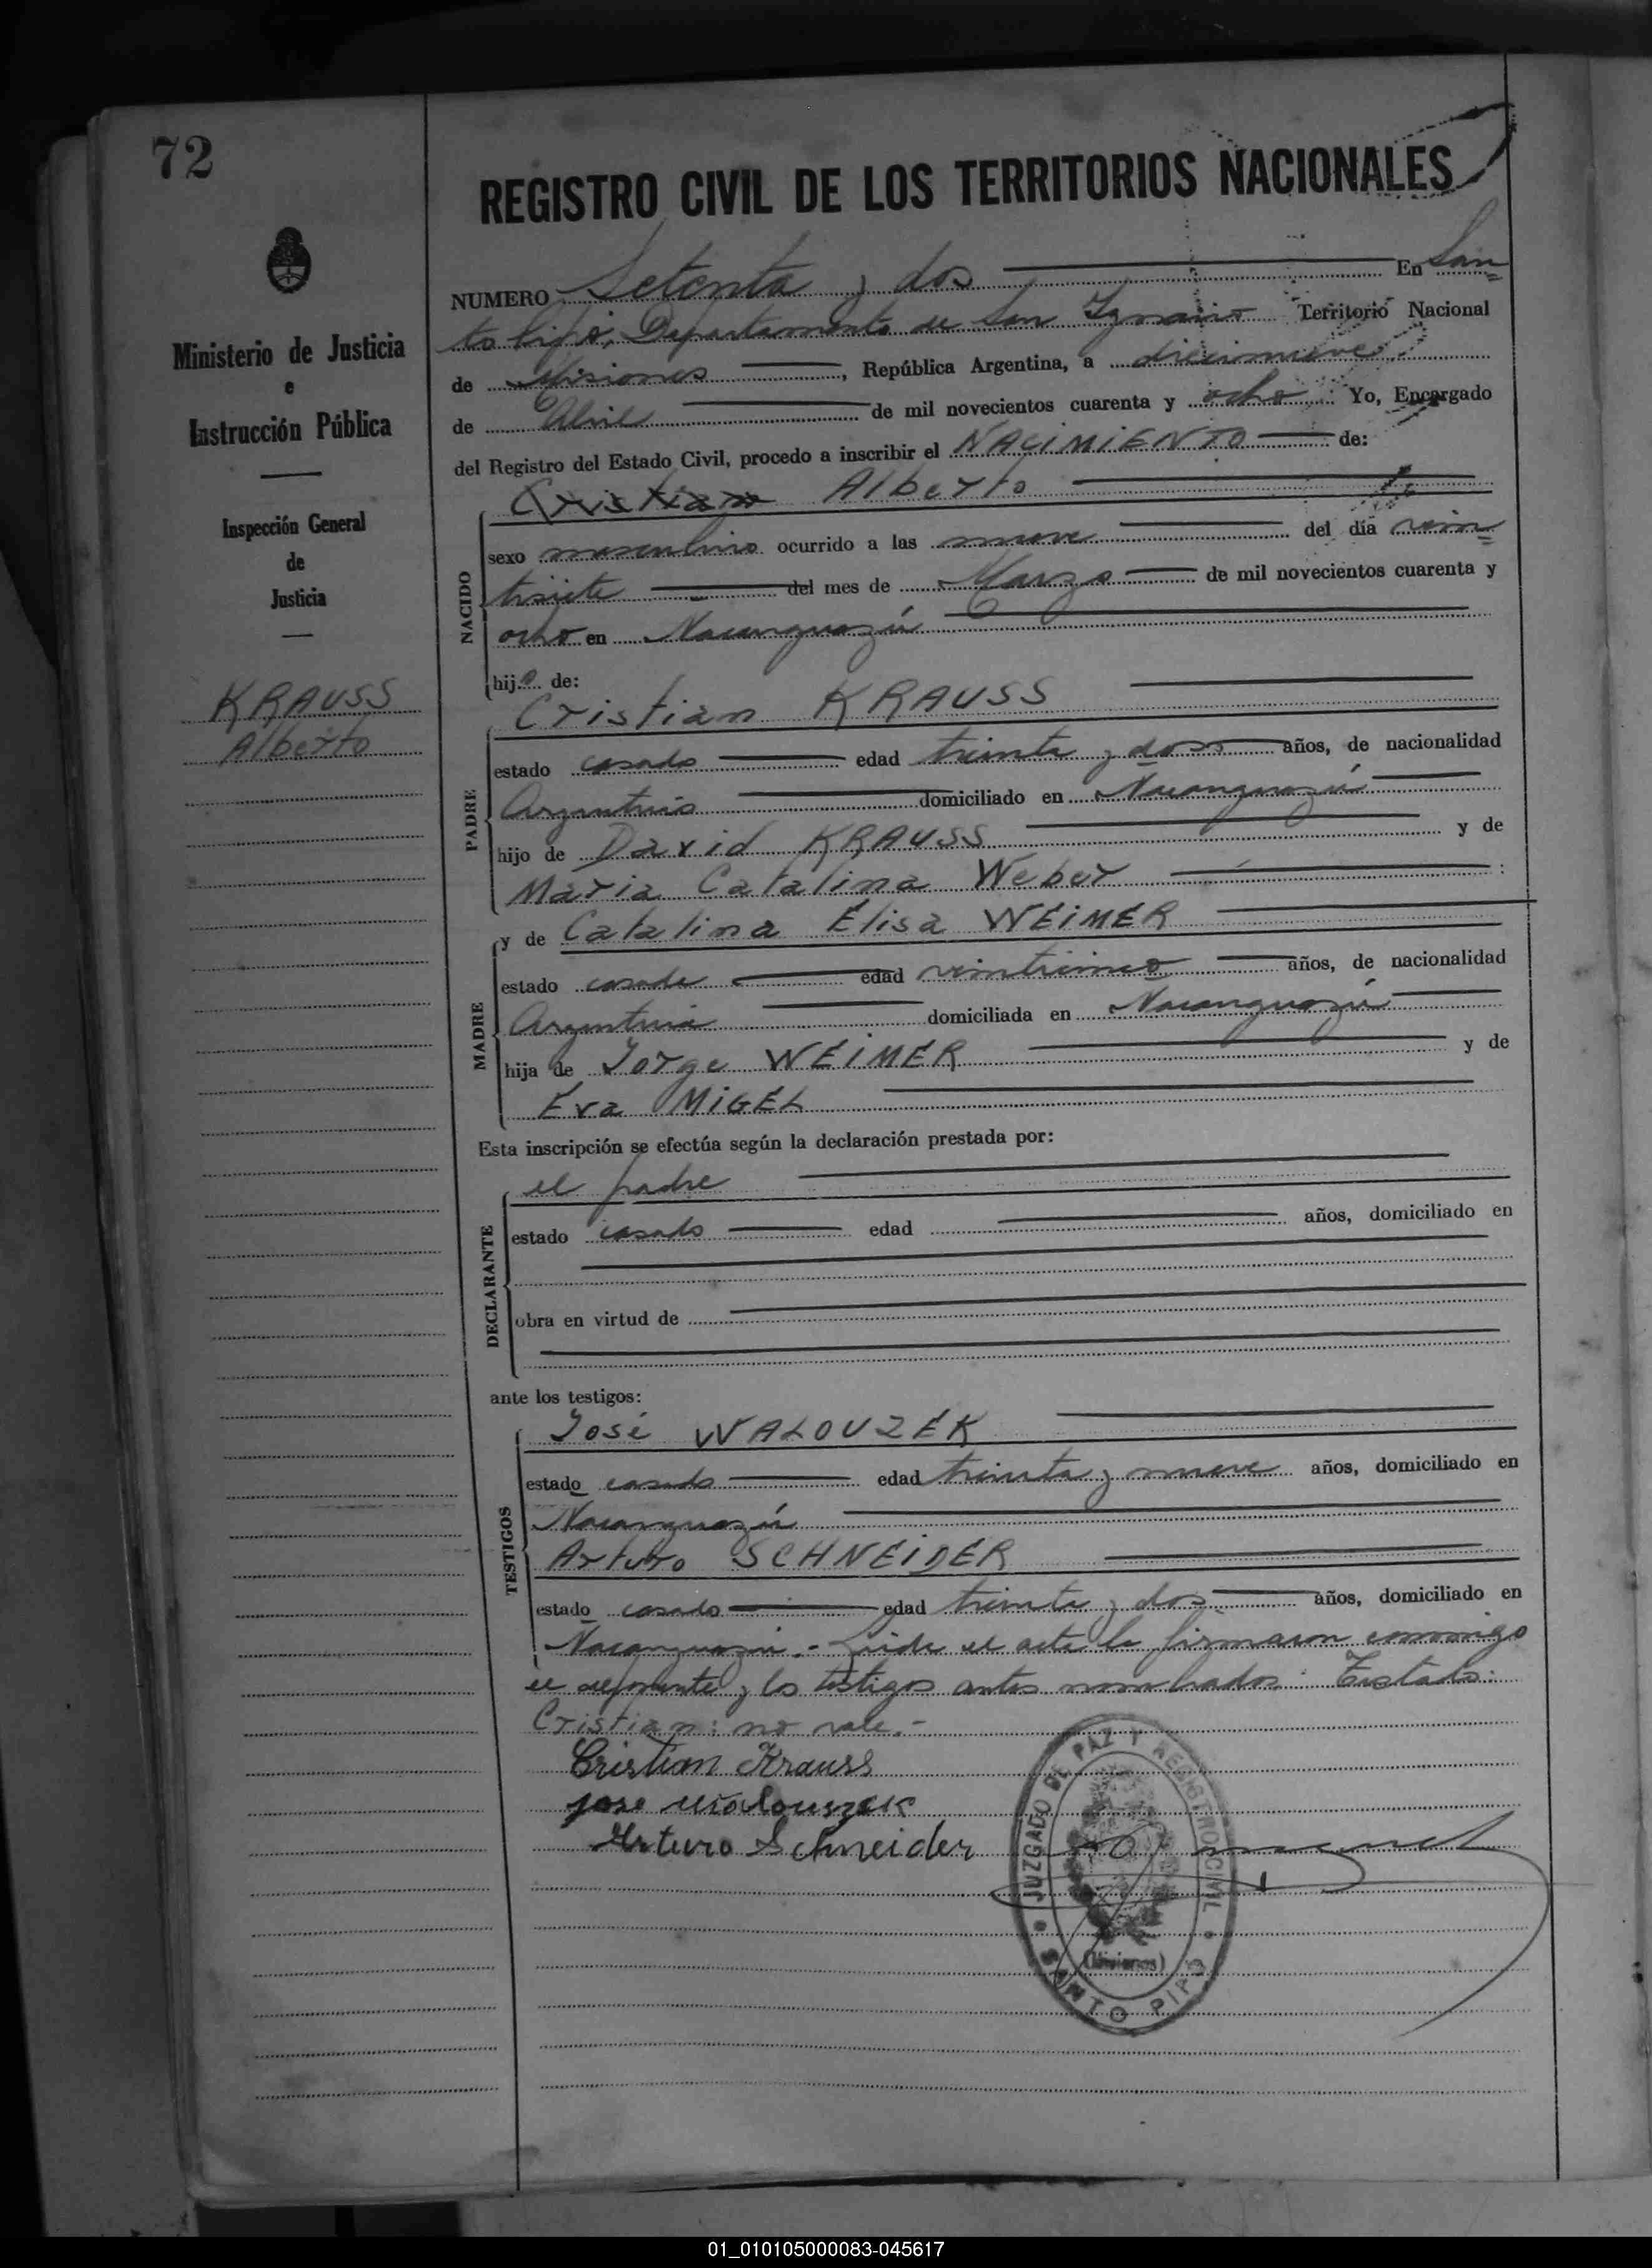 72
REGISTRO CIVIL DE LOS TERRITORIOS NACIONALES
Ministerio de Justicia
e
Instrucción Pública
Inspección General
de
Justicia
KRAUSS
Alberto
NUMERO Setenta y dos En San=
to Pipó, Departamento de San Ignacio Territorio Nacional
de Misiones, República Argentina, a diecinueve
de Abril de mil novecientos cuarenta y ocho Yo, Encargado
del Registro del Estado Civil, procedo a inscribir el NACIMIENTO de:
Cristian Alberto
NACIDO
sexo masculino ocurrido a las nueve del día vein=
tisiete del mes de Marzo de mil novecientos cuarenta y
ocho en Ñacanguazú
hijo de:
Cristian KRAUSS
PADRE
estado casado edad treinta y dos años, de nacionalidad
Argentino domiciliado en Ñacanguazú
hijo de David KRAUSS y de
Maria Catalina Weber
y de Catalina Elisa WEIMER
MADRE
estado casada edad veinticinco años, de nacionalidad
Argentina domiciliada en Ñacanguazú
hija de Jorge WEIMER y de
Eva MIGEL
Esta inscripción se efectúa según la declaración prestada por:
el padre
DECLARANTE
estado casado edad años, domiciliado en
obra en virtud de
ante los testigos:
José WALOUZEK
TESTIGOS
estado casado edad treinta y nueve años, domiciliado en
Ñacanguazú
Arturo SCHNEIDER
estado casado edad treinta y dos años, domiciliado en
Ñacanguazú.- Leída el acta la firmaron conmigo
el deponente y los testigos antes nombrados. Testado:
Cristian: no vale.-
Cristian Krauss
jose walouszek
Arturo Schneider
JUZGADO DE PAZ Y REGISTRO CIVIL
(Misiones)
SANTO PIPO
01_010105000083-045617